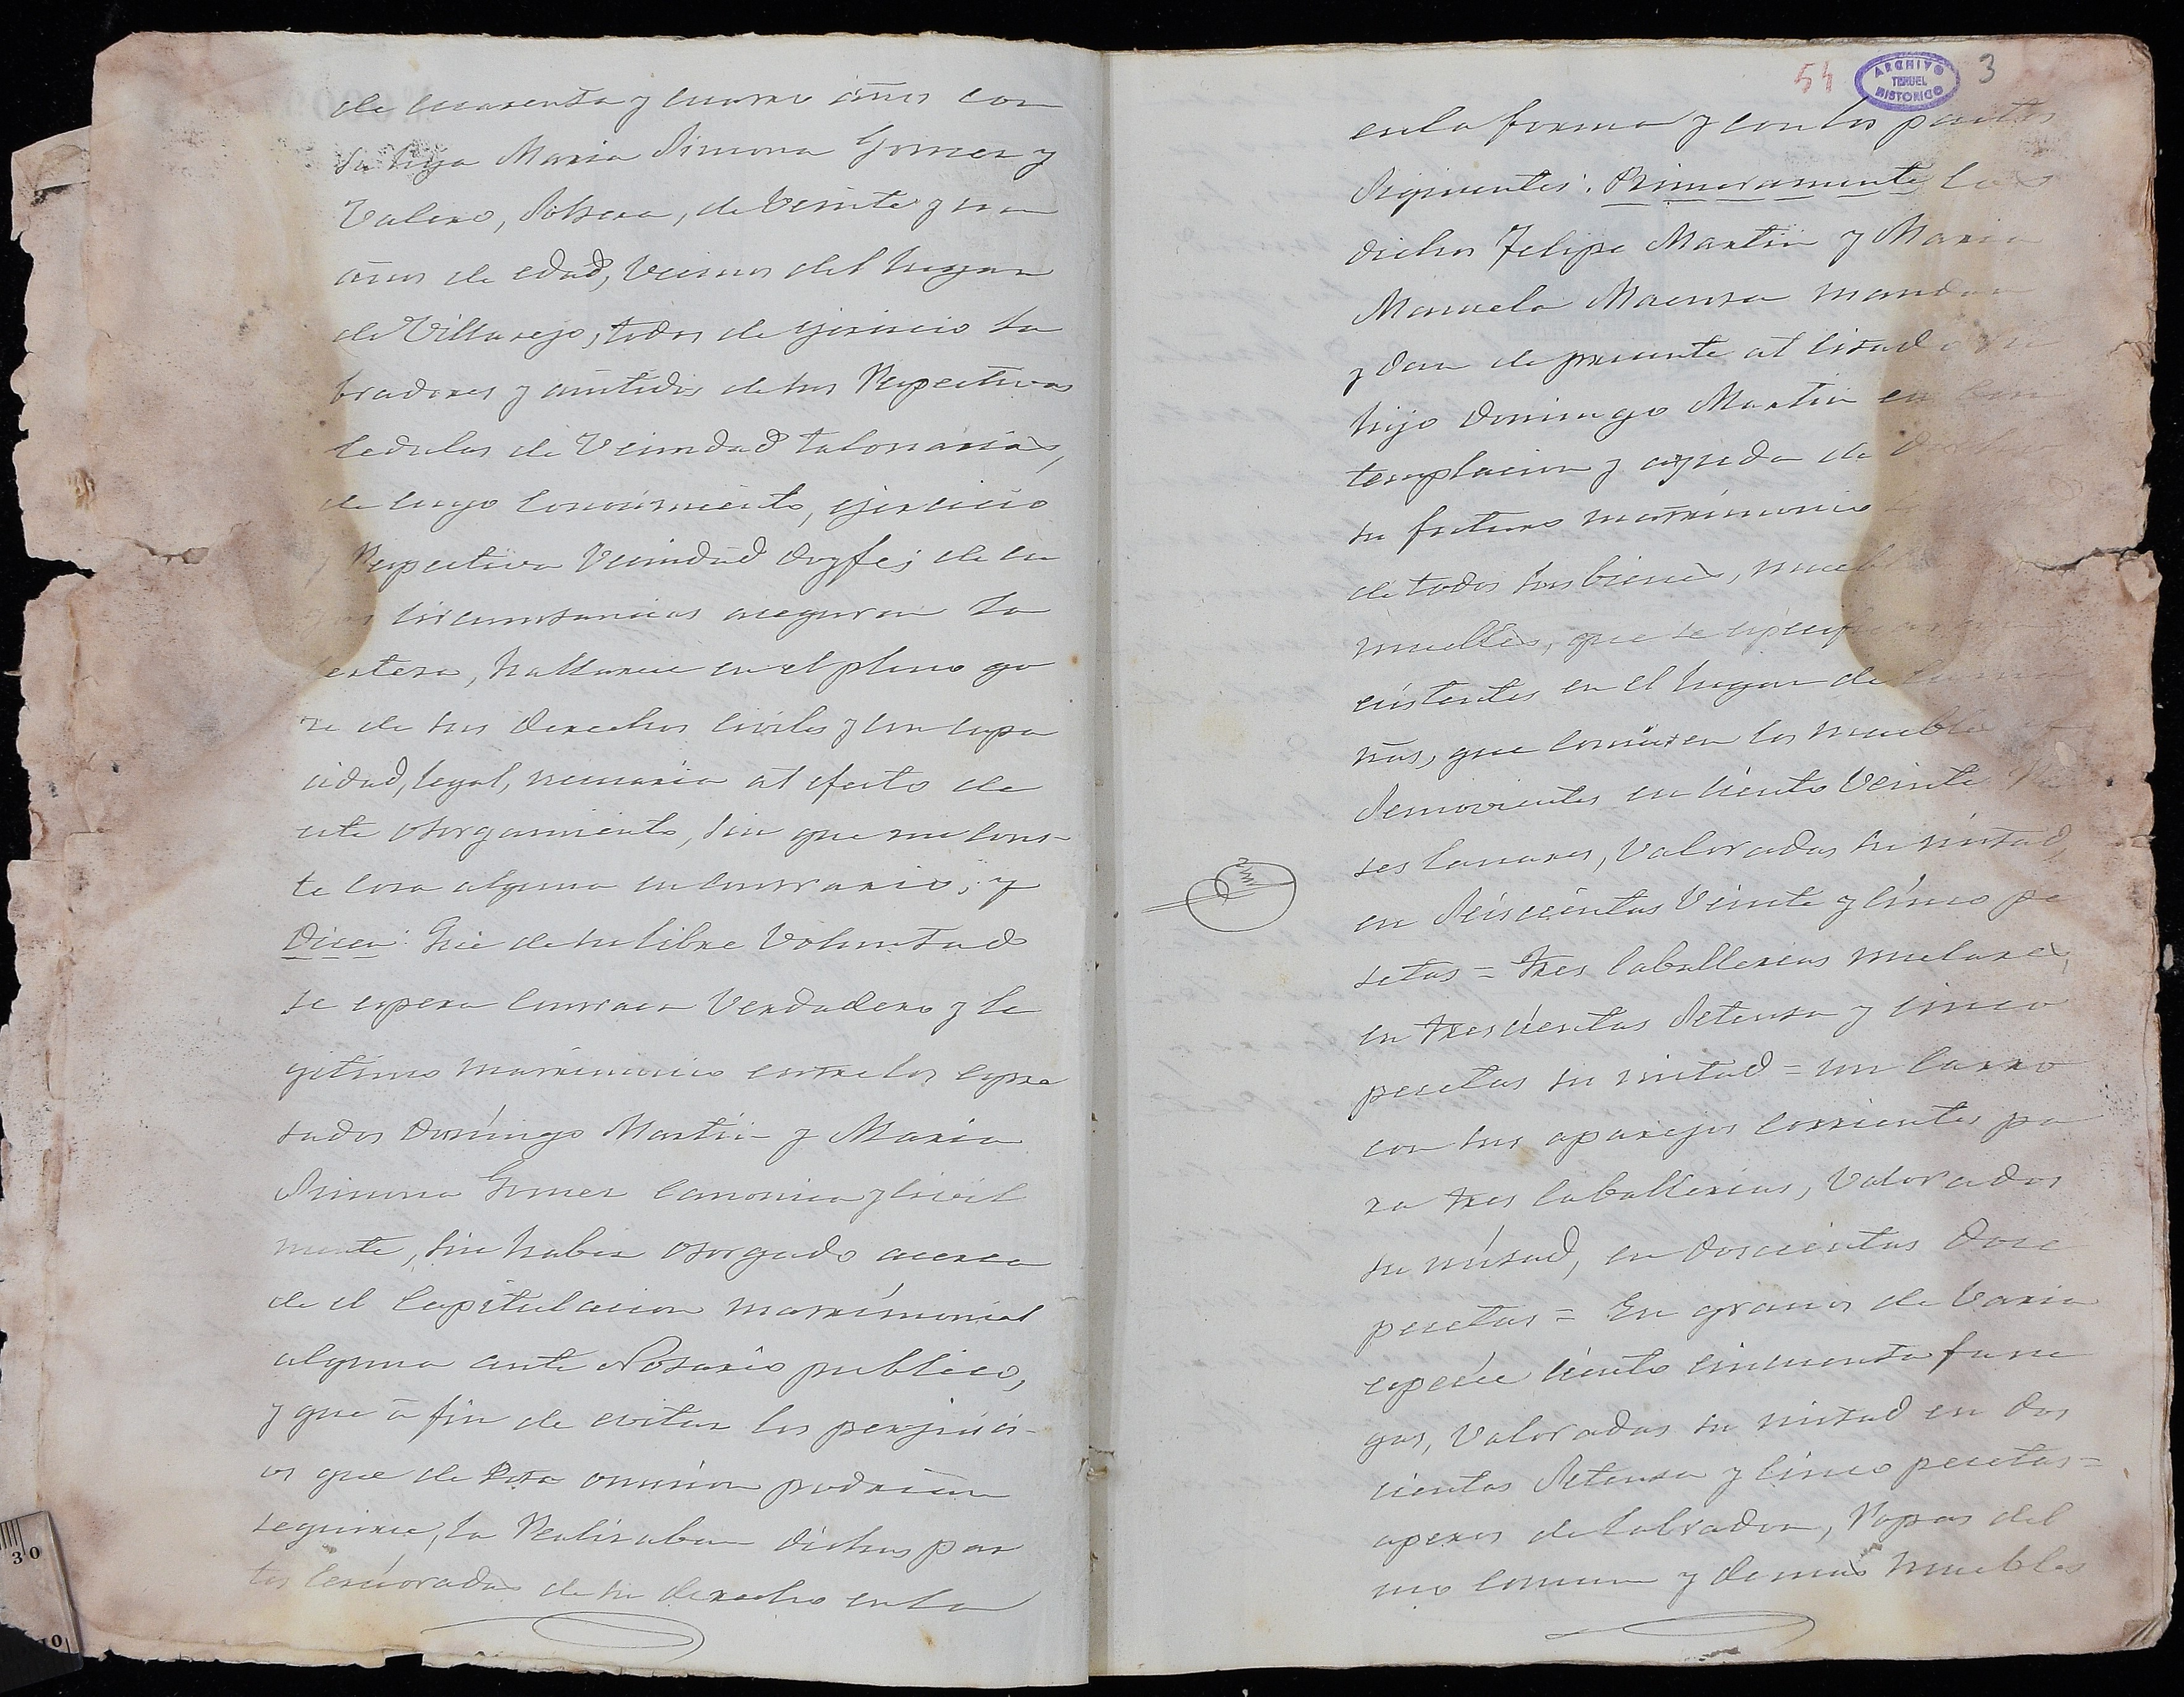 de cuarenta y cuatro años con
su hija Maria Simona Gomez y
Valero, Soltera, de veinte y un
años de edad, vecinos del lugar
de Villarejo, todos de ejercicio la
bradores y asistidos de sus Respectivas
Cedulas de Vecindad talonarias,
de cuyo conocimiento, ejercicio
y Respectiva Vecindad doy fe; de cu
yas circunstancias aseguran la
certeza, hallarse en el pleno go
ze de sus derechos civiles y con capa
cidad, legal, necesaria al efecto de
este otorgamiento, sin que me cons-
te cosa alguna en contrario; y
Dicen: Que de su libre Voluntad
se espera contraer Verdadero y le
gitimo matrimonio entre los espre
sados Domingo Martin y Maria
Simona Gomez canonica y civil
mente, sin haber otorgado acerca
de el Capitulacion matrimonial
alguna ante Notario publico,
y que á fin de evitar los perjuici-
os que de esta omision podrian
seguirse, la Realizaban dichas par
tes cercioradas de su derecho en la
54
ARCHIVO
TERUEL
HISTORICO
3
en la forma y con los pactos
siguientes: Primeramente los
dichos Felipe Martin y Maria
Manuela Maenza mandan
y dan de presente al citado su
hijo Domingo Martin en con
templacion y ayuda de dicho
su futuro matrimonio
de todos sus bienes, muebles
muebles, que se especificarán
existentes en el lugar de
ñas, que consisten los muebles
Semovientes en ciento Veinte Re
ses lanares, Valoradas su mitad,
en Seiscientas Veinte y cinco pe
setas = tres caballerias mulares,
en trescientas Setenta y cinco
pesetas su mitad = un carro
con sus aparejos corrientes pa
ra tres caballerias, Valorados
su mitad, en doscientas doce
pesetas = En granos de varia
especie ciento cincuenta fane
gas, Valoradas su mitad en dos
cientas Setenta y cinco pesetas =
aperos de labrador, Ropas del
uso comun y demás muebles